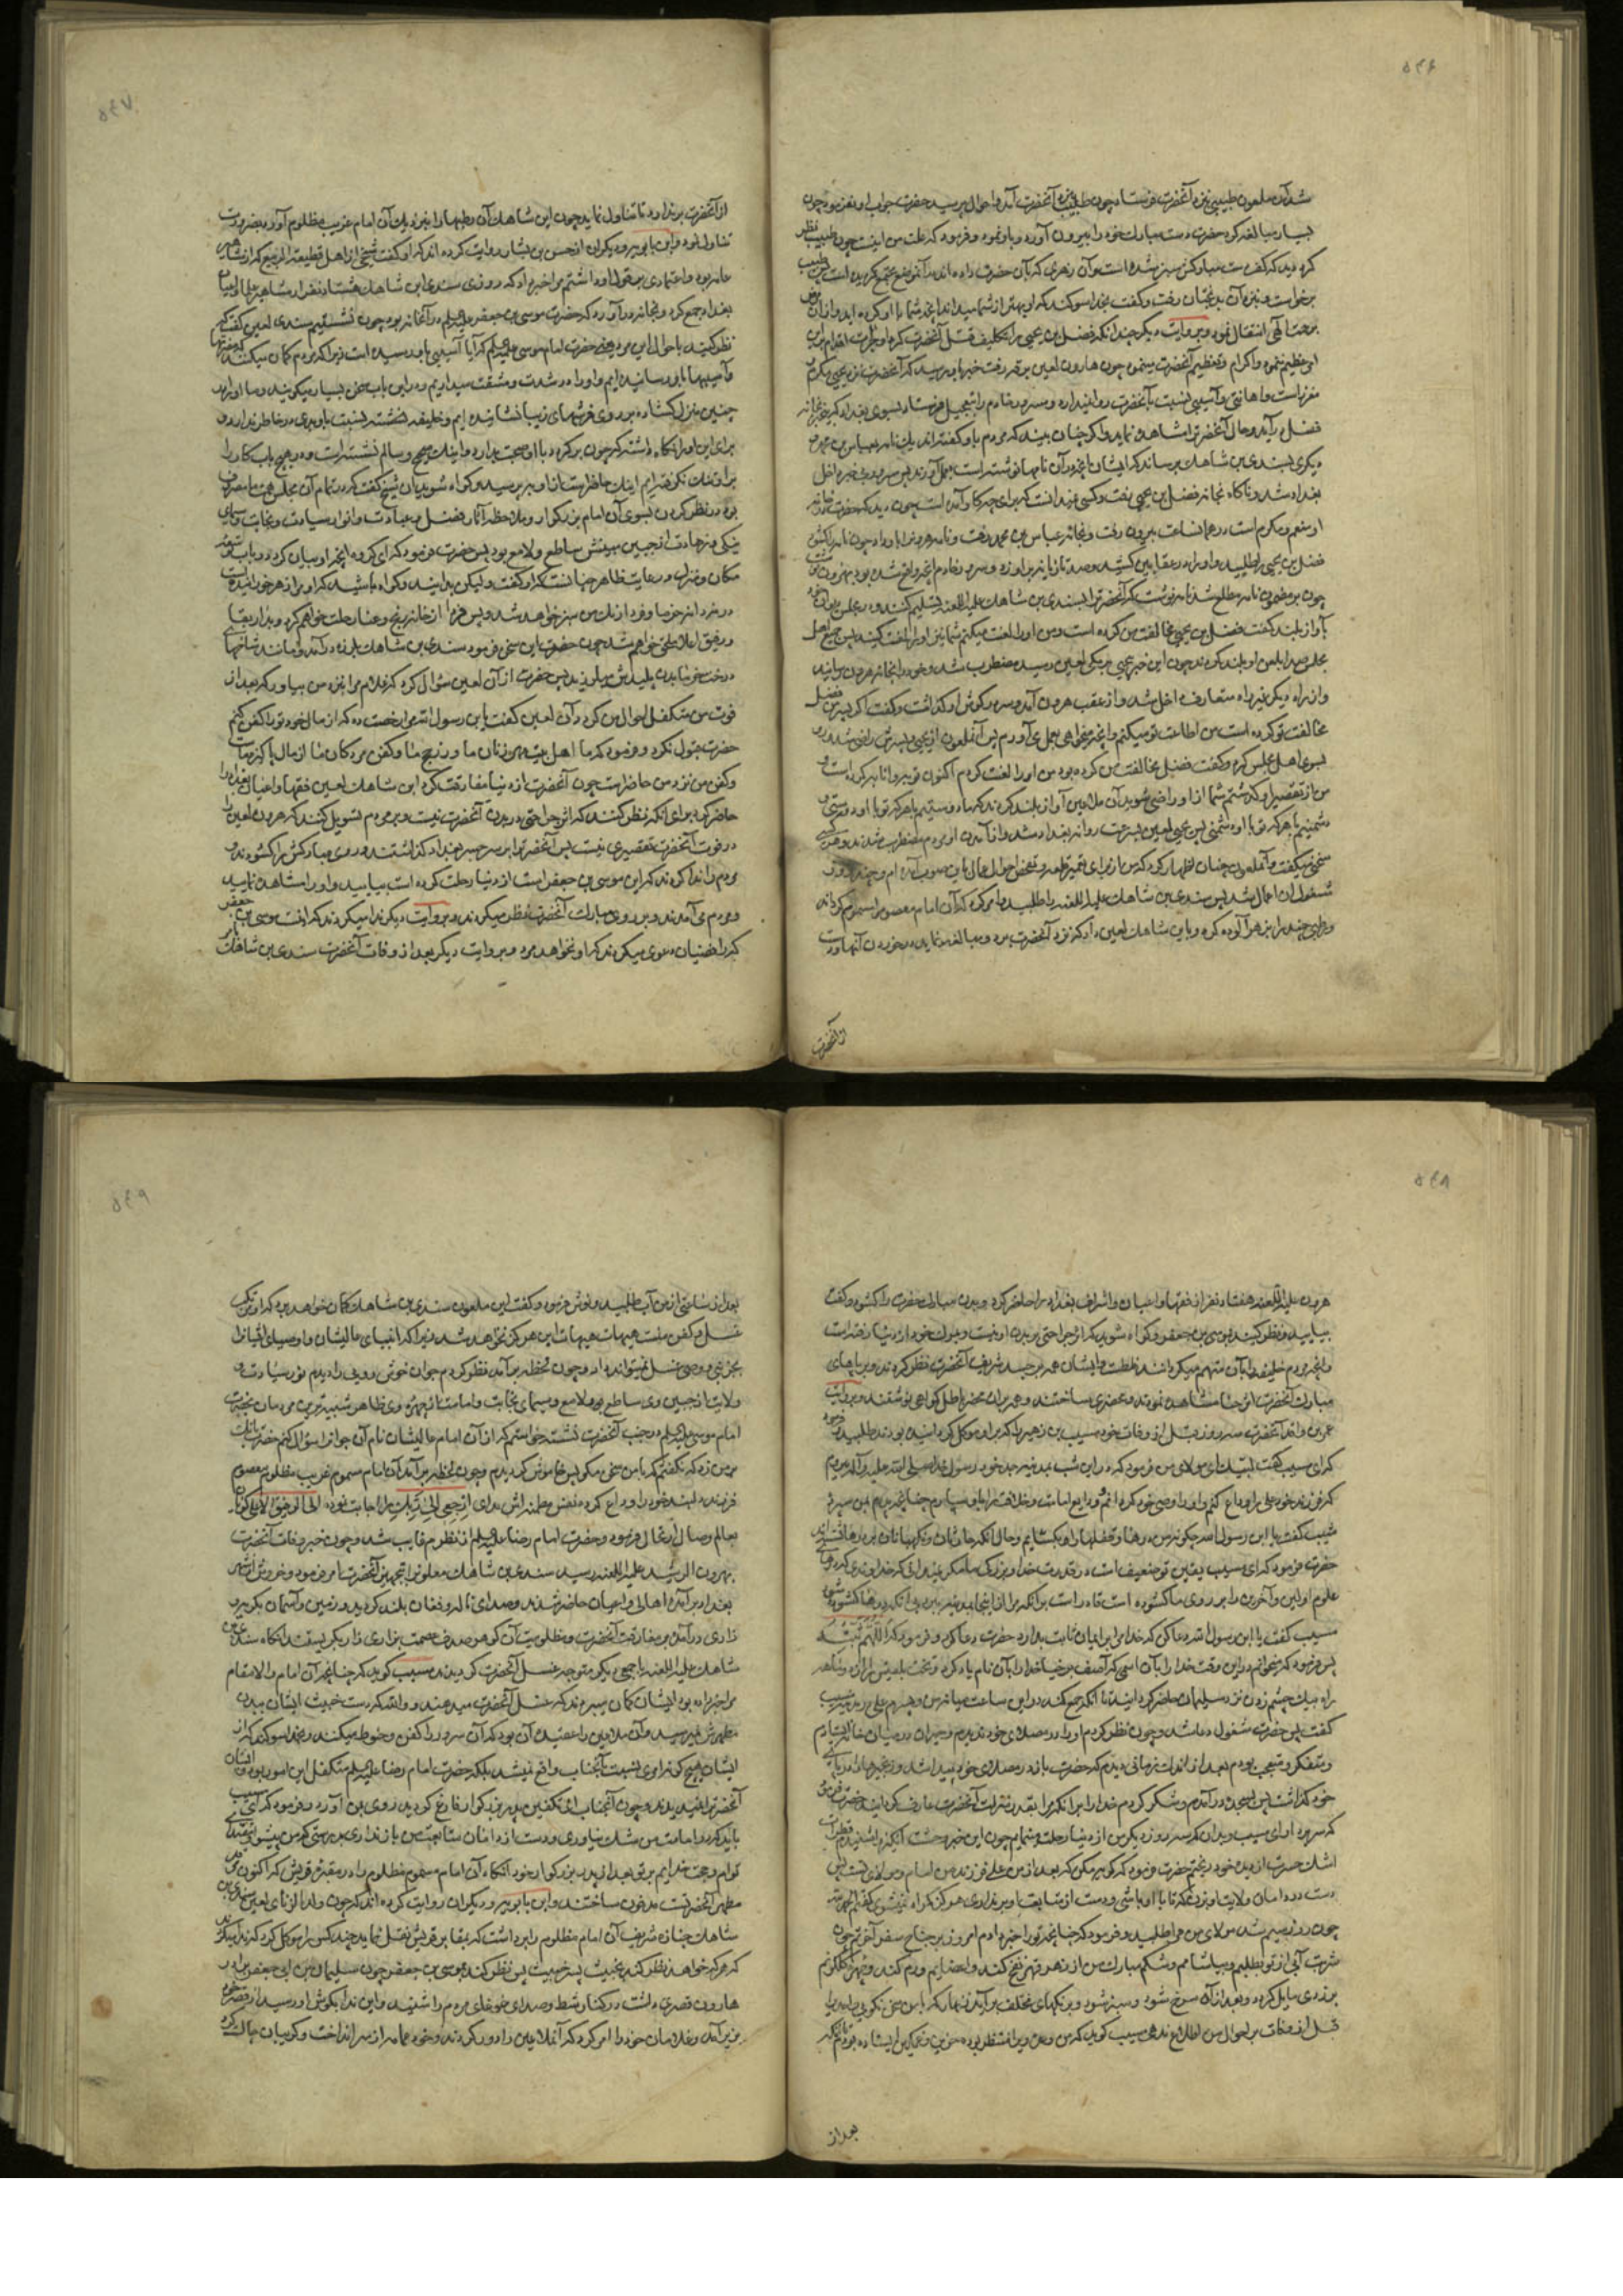 ۵۴۶
شد آن ملعون طبیبی نزد آنحضرت فرستاد چون طبیب نزد آنحضرت آمد و احوال پرسید حضرت جواب او نفرمود چون
بسیار مبالغه کرد حضرت دست مبارک خود را بیرون آورد و باو نمود و فرمود که علت من اینست چون طبیب نظر
کرد دید که کف دست مبارکش سبز شده است و آن زهری که بآن حضرت داده اند در آنموضع مجتمع گردیده است پس طبیب
برخاست و نزد آن بدبختان رفت و گفت بخدا سوکند که او بهتر از شما میداند آنچه شما با او کرده اید و از آن مرض
برحمت الهی انتقال نمود و بروایت دیگر چندانکه فضل بن یحیی را تکلیف قتل آنحضرت کرد او جرأت اقدام براین
امر عظیم ننمود و اکرام و تعظیم آنحضرت مینمود چون هارون لعین برقه رفت خبر باو رسید که آنحضرت نزد یحیی مکرم
و معزز است و اهانتی و آسیبی نسبت بآنحضرت روا نمیدارد و مسرور خادم را بتعجیل فرستاد بسوی بغداد که بیخبر بخانه
فضل درآید و حال آنحضرت را مشاهده نماید و اگر چنان بیند که مردم باو گفته اند یک نامه بعباس بن محمد
و دیگری بسندی بن شاهک برساند که ایشان آنچه در آن نامها نوشته است بعمل آورند پس مسرور بیخبر داخل
بغداد شد و ناگاه بخانه فضل بن یحیی رفت و کسی نمیدانست که برای چه کار آمده است چون دید که حضرت در خانه
او معزز و مکرم است در همان ساعت بیرون رفت و بخانه عباس بن محمد رفت و نامه هرون را باو داد چون نامه را گشود
فضل بن یحیی را طلبید و او را در عقابین کشید و صد تازیانه بر او زد و مسرور خادم آنچه واقع شده بود بهرون نوشت
چون بر مضمون نامه مطلع شد نامه نوشت که آنحضرت را بسندی بن شاهک علیه اللعنه تسلیم کنند و در مجلس دیوان خود
بآواز بلند گفت فضل بن یحیی مخالفت من کرده است و من او را لعنت میکنم شما نیز او را لعنت کنید پس جمیع اهل
مجلس صدا بلعن او بلند کردند چون این خبر بیحیی برمکی لعین رسید مضطرب شد و خود را بخانه هرون رسانید
و از راه دیگر غیر راه متعارف داخل شد و از عقب هرون آمد و سر در گوش او گذاشت و گفت اگر پسر من فضل
مخالفت تو کرده است من اطاعت تو میکنم و آنچه میخواهی بعمل می آورم پس آنملعون از یحیی و پسرش راضی شد و رو
بسوی اهل مجلس کرد و گفت فضل مخالفت من کرده بود من او را لعنت کردم اکنون توبه و انابه کرده است و
من از تقصیر او گذشتم شما از او راضی شوید آن ملاعین آواز بلند کردند که ما دوستیم با هر که تو با او دوستی و
دشمنیم با هر که تو با او دشمنی پس یحیی لعین بسرعت روانه بغداد شد و از آمدن او مردم مضطرب شدند و هر کسی
سخنی میگفت و آنملعون چنان اظهار کرد که من از برای تعمیر قلعه و تفحص احوال عمال باین صوب آمده ام و چند روز
مشغول آن اعمال شد پس سندی بن شاهک علیه اللعنه را طلبید و امر کرد که آن امام معصوم را مسموم گرداند
و رطبی چند را بزهر آلوده کرد و بابن شاهک لعین داد که نزد آنحضرت ببرد و مبالغه نماید در خوردن آنها و دست
از آنحضرت
۵۴۷
از آنحضرت برندارد تا تناول نماید چون ابن شاهک آن رطبها را بنزدیک آن امام غریب مظلوم آورد بضرورت
تناول نمود و ابن بابویه و دیگران از حسن بن بشار روایت کرده اند که او گفت شیخی از اهل قطیعة الربیع که از مشاهیر
عامه بود و اعتمادی بر قول او داشتم مرا خبر داد که روزی سندی ابن شاهک هشتاد نفر از مشاهیر علما و اعیان
بغداد جمع کرد و بخانه درآورد که حضرت موسی بن جعفر علیه السلم در آنخانه بود چون نشستیم سندی لعین گفت که
نظر کنید باحوال این مرد یعنی حضرت امام موسی علیه السلم که آیا آسیبی باو رسیده است زیرا که مردم گمان میکنند که اذیتها
و آسیبها باو رسانیده ایم و او را در شدت و مشقت میداریم و در این باب سخن بسیار میگویند و ما او را در
چنین منزل گشاده بر روی فرشهای زیبا نشانیده ایم و خلیفه نسبت باو بدی در خاطر ندارد و
برای این او را نگاه داشته که چون برگردد با او صحبت بدارد و اینک صحیح و سالم نشسته است و در هیچ باب کار را
بر او تنگ نگرفته ایم اینک حاضر است از او بپرسید و گواه شوید آن شیخ گفت که در تمام آن مجلس همت ما مصروف
بود در نظر کردن بسوی آن امام بزرگوار و ملاحظه آثار فضل و عبادت و انوار سیادت و نجابت و سیمای
نیکی و زهادت از جبین مبینش ساطع و لامع بود پس حضرت فرمود که ای گروه آنچه او بیان کرد در باب توسعه
مکان و منزل و رعایت ظاهر چنانست که او گفت ولیکن بدانید و گواه باشید که او مرا زهر خورانیده است
در نه دانه خرما و فردا رنگ من سبز خواهد شد و پس فردا از خانه رنج و عنا رحلت خواهم کرد و بدار بقا
و رفیق اعلا ملحق خواهم شد چون حضرت این سخن فرمود سندی بن شاهک بلرزه درآمد و مانند شاخهای
درخت خرما بدن پلیدش میلرزید پس حضرت از آن لعین سؤال کرد که غلام مرا بنزد من بیاور که بعد از
فوت من متکفل احوال من گردد آن لعین گفت یا بن رسول الله مرا رخصت ده که از مال خود تو را کفن کنم
حضرت قبول نکرد و فرمود که ما اهل بیت مهر زنان ما و زر حج ما و کفن مردگان ما از مال پاکیزه ماست
و کفن من نزد من حاضر است چون آنحضرت از دنیا مفارقت کرد ابن شاهک لعین فقها و اعیان بغداد را
حاضر کرد برای آنکه نظر کنند که اثر جراحتی در بدن آنحضرت نیست و بر مردم تسویل کنند که هرون لعین را
در فوت آنحضرت تقصیری نیست پس آنحضرت را بر سر جسر بغداد گذاشتند و روی مبارکش را گشودند و
مردم را ندا کردند که این موسی بن جعفر است از دنیا رحلت کرده است بیایید و او را مشاهده نمایید
و مردم می آمدند و بر روی مبارک آنحضرت نظر میکردند و بروایت دیگر ندا میکردند که اینست موسی بن جعفر
که رافضیان دعوی میکردند که او نخواهد مرد و بروایت دیگر بعد از وفات آنحضرت سندی بن شاهک بامر
۵۴۸
هرون علیه اللعنه هفتاد نفر از فقها و اعیان و اشراف بغداد را حاضر کرد و بدن مبارک حضرت را گشود و گفت
بیایید و نظر کنید بموسی بن جعفر و گواه شوید که اثر جراحتی بر بدن او نیست و بمرگ خود از دنیا رفته است
و آنچه مردم خلیفه را بآن متهم میگردانند غلط است و ایشان همه بر جسد شریف آنحضرت نظر کردند و بر پاهای
مبارک آنحضرت اثر حنا مشاهده نمودند و محضری ساختند و همه بر آن محضر باطل گواهی نوشتند و بروایت
عمر بن واقد آنحضرت سه روز قبل از وفات خود مسیب بن زهیر را که بر او موکل گردانیده بودند طلبید و فرمود
که ای مسیب گفت لبیک ای مولای من فرمود که در این شب بمدینه جد خود رسول خدا صلی الله علیه و آله میروم
که فرزند خود علی را وداع کنم و او را وصی خود گردانم و ودایع امامت و خلافت را باو سپارم چنانچه پدرم بمن سپرد
مسیب گفت یا ابن رسول الله چگونه من درها و قفلها را بگشایم و حال آنکه حارسان و نگهبانان بر درها نشسته اند
حضرت فرمود که ای مسیب یقین تو ضعیف است در قدرت خدا و بزرگی ما مگر نمیدانی که خداوندی که درهای
علوم اولین و آخرین را بر روی ما گشوده است قادر است بر آنکه مرا از اینجا بمدینه ببرد بی آنکه درها گشوده شود
مسیب گفت یا ابن رسول الله دعا کن که خدا مرا بر ایمان ثابت بدارد حضرت دعا کرد و فرمود که اللهم ثبته
پس فرمود که میخوانم در این وقت خدا را بآن اسمی که آصف برخیا خدا را بآن نام یاد کرد و تخت بلقیس را از دو ماهه
راه بیک چشم زدن نزد سلیمان حاضر گردانید تا آنکه جمع کند در این ساعت میان من و پسرم علی در مدینه مسیب
گفت پس حضرت مشغول دعا شد و چون نظر کردم او را در مصلای خود ندیدم و حیران در میان خانه ایستادم
و متفکر و متعجب بودم بعد از اندک زمانی دیدم که حضرت باز در مصلای خود پیدا شد و زنجیرها در پای
خود گذاشت پس بسجده درآمدم و شکر کردم خدا را بر آنکه مرا بقدر و منزلت آنحضرت عارف گردانید حضرت فرمود
که سر بردار ای مسیب و بدان که سه روز دیگر من از دنیا رحلت مینمایم چون این خبر وحشت انگیز را شنیدم قطرات
اشک حسرت از دیده خود ریختم حضرت فرمود که گریه مکن که بعد از من علی فرزند من امام و مولای تست پس
دست در دامان ولایت او بزن که تا با او باشی و دست از متابعت او برنداری هرگز گمراه نمیشوی گفتم الحمدلله
چون روز سیم شد مولای من مرا طلبید و فرمود که چنانچه تو را خبر دادم امروز بر جناح سفر آخرتم چون
شربت آبی از تو بطلبم و بیاشامم و شکم مبارک من از زهر قهر نفخ کند و اعضایم ورم کند و چهره گلگونم
بزردی مایل گردد و بعد از آن سرخ شود و سبز شود و برنگهای مختلف برآید زنهار که با من سخن نگویی و احدی را
قبل از وفات بر احوال من اطلاع ندهی مسیب گوید که من وعده ویرا منتظر بودم حزین و غمگین ایستاده بودم تا آنکه
بعد از
۵۴۹
بعد از ساعتی از من آب طلبید و نوش فرمود و گفت این ملعون سندی بن شاهک گمان خواهد برد که او مرتکب
غسل و کفن منست هیهات هیهات این هرگز نخواهد شد زیرا که انبیای عالیشان و اوصیای ایشانرا
بجز نبی و وصی غسل نمیتواند داد و چون لحظه برآمد نظر کردم جوان خوش رویی را دیدم نور سیادت و
ولایت از جبین وی ساطع بود و لامع و سیمای نجابت و امامت از چهره وی ظاهر شبیه ترین مردمان بحضرت
امام موسی علیه السلم در جنب آنحضرت نشست خواستم که از آن امام عالیشان نام آن جوان را سؤال کنم حضرت بانک
بر من زد که نگفتم که با من سخن مگو پس خاموش گردیدم و چون لحظه برآمد آن امام مسموم غریب مظلوم معصوم
فرزند دلبند خود را وداع کرده نفس مطمئنه اش ندای ارجعی الی ربک را اجابت نموده الی الرفیق الاعلی گویان
بعالم وصال ارتحال فرمود و حضرت امام رضا علیه السلم از نظرم غایب شد و چون خبر وفات آنحضرت
بهرون الرشید علیه اللعنه رسید سندی بن شاهک ملعون را بتجهیز آنحضرت امر فرمود و خروش از شهر
بغداد برآمد و اهالی و اعیان حاضر شدند و صدای ناله و فغان بلند گردید و زمین و آسمان بگریه و
زاری درآمدند بر مفارقت آنحضرت و مظلومیت آن گوهر صدف عصمت بزاری زار بگریستند آنگاه سندی بن
شاهک علیه اللعنه با جمعی دیگر متوجه غسل آنحضرت گردیدند مسیب گوید که چنانچه آن امام والا مقام
مرا خبر داده بود ایشان گمان میبردند که غسل آنحضرت میدهند و والله که دست خبیث ایشان ببدن
مطهرش نمیرسید و آن ملاعین را عقیده آن بود که آن سرور را کفن و حنوط میکنند و بخدا سوگند که از
ایشان هیچگونه امری نسبت بآنجناب واقع نمیشد بلکه حضرت امام رضا علیه السلم متکفل این امور بود و ایشان
آنحضرت را نمیدیدند و چون آنجناب از تکفین پدر بزرگوار فارغ گردید روی بمن آورد و فرمود که ای مسیب
باید که در امامت من شک نیاوری و دست از دامان متابعت من بازنداری بدرستی که من پیشوا و مقتدای
توام و حجت خدایم بر تو بعد از پدر بزرگوار خود آنگاه آن امام مسموم مظلوم را در مقبره قریش که اکنون مرقد
مطهر آنحضرتست مدفون ساختند و ابن بابویه و دیگران روایت کرده اند که چون ولدالزنای لعین سندی بن
شاهک جنازه شریف آن امام مظلوم را برداشت که بمقابر قریش نقل نماید چند کس را موکل کرد که ندا میکردند
که هر که خواهد نظر کند بخبیث پسر خبیث پس نظر کند بموسی بن جعفر چون سلیمان بن ابی جعفر برادر
هارون قصری داشت در کنار شط و صدای غوغای مردم را شنید و این ندا بگوش او رسید از قصر خود
بزیر آمد و غلامان خود را امر کرد که آنملاعین را دور کردند و خود عمامه از سر انداخت و گریبان چاک کرد